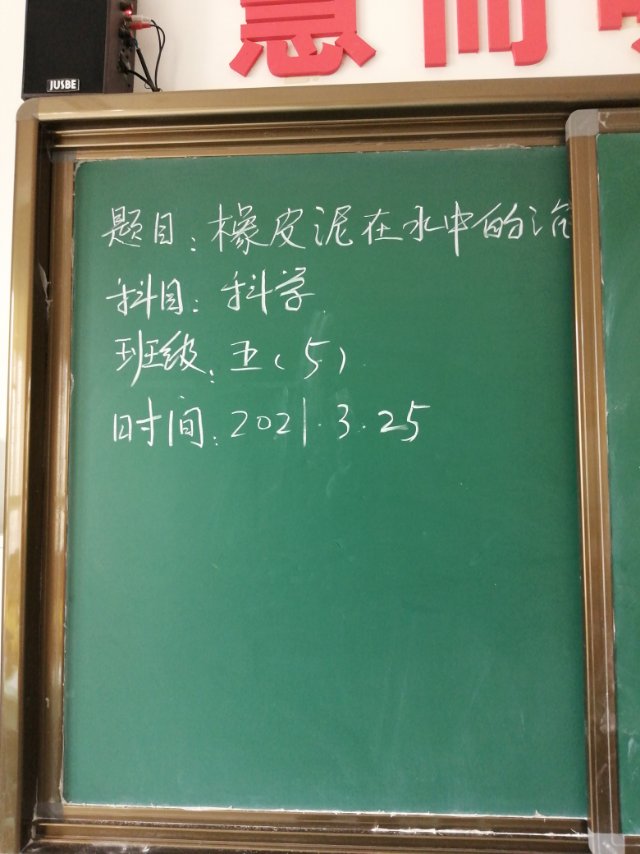 慧而
JUSBE
题目:橡皮泥在水中的
科目:科学
班级:五(5)
时间:2021.3.25